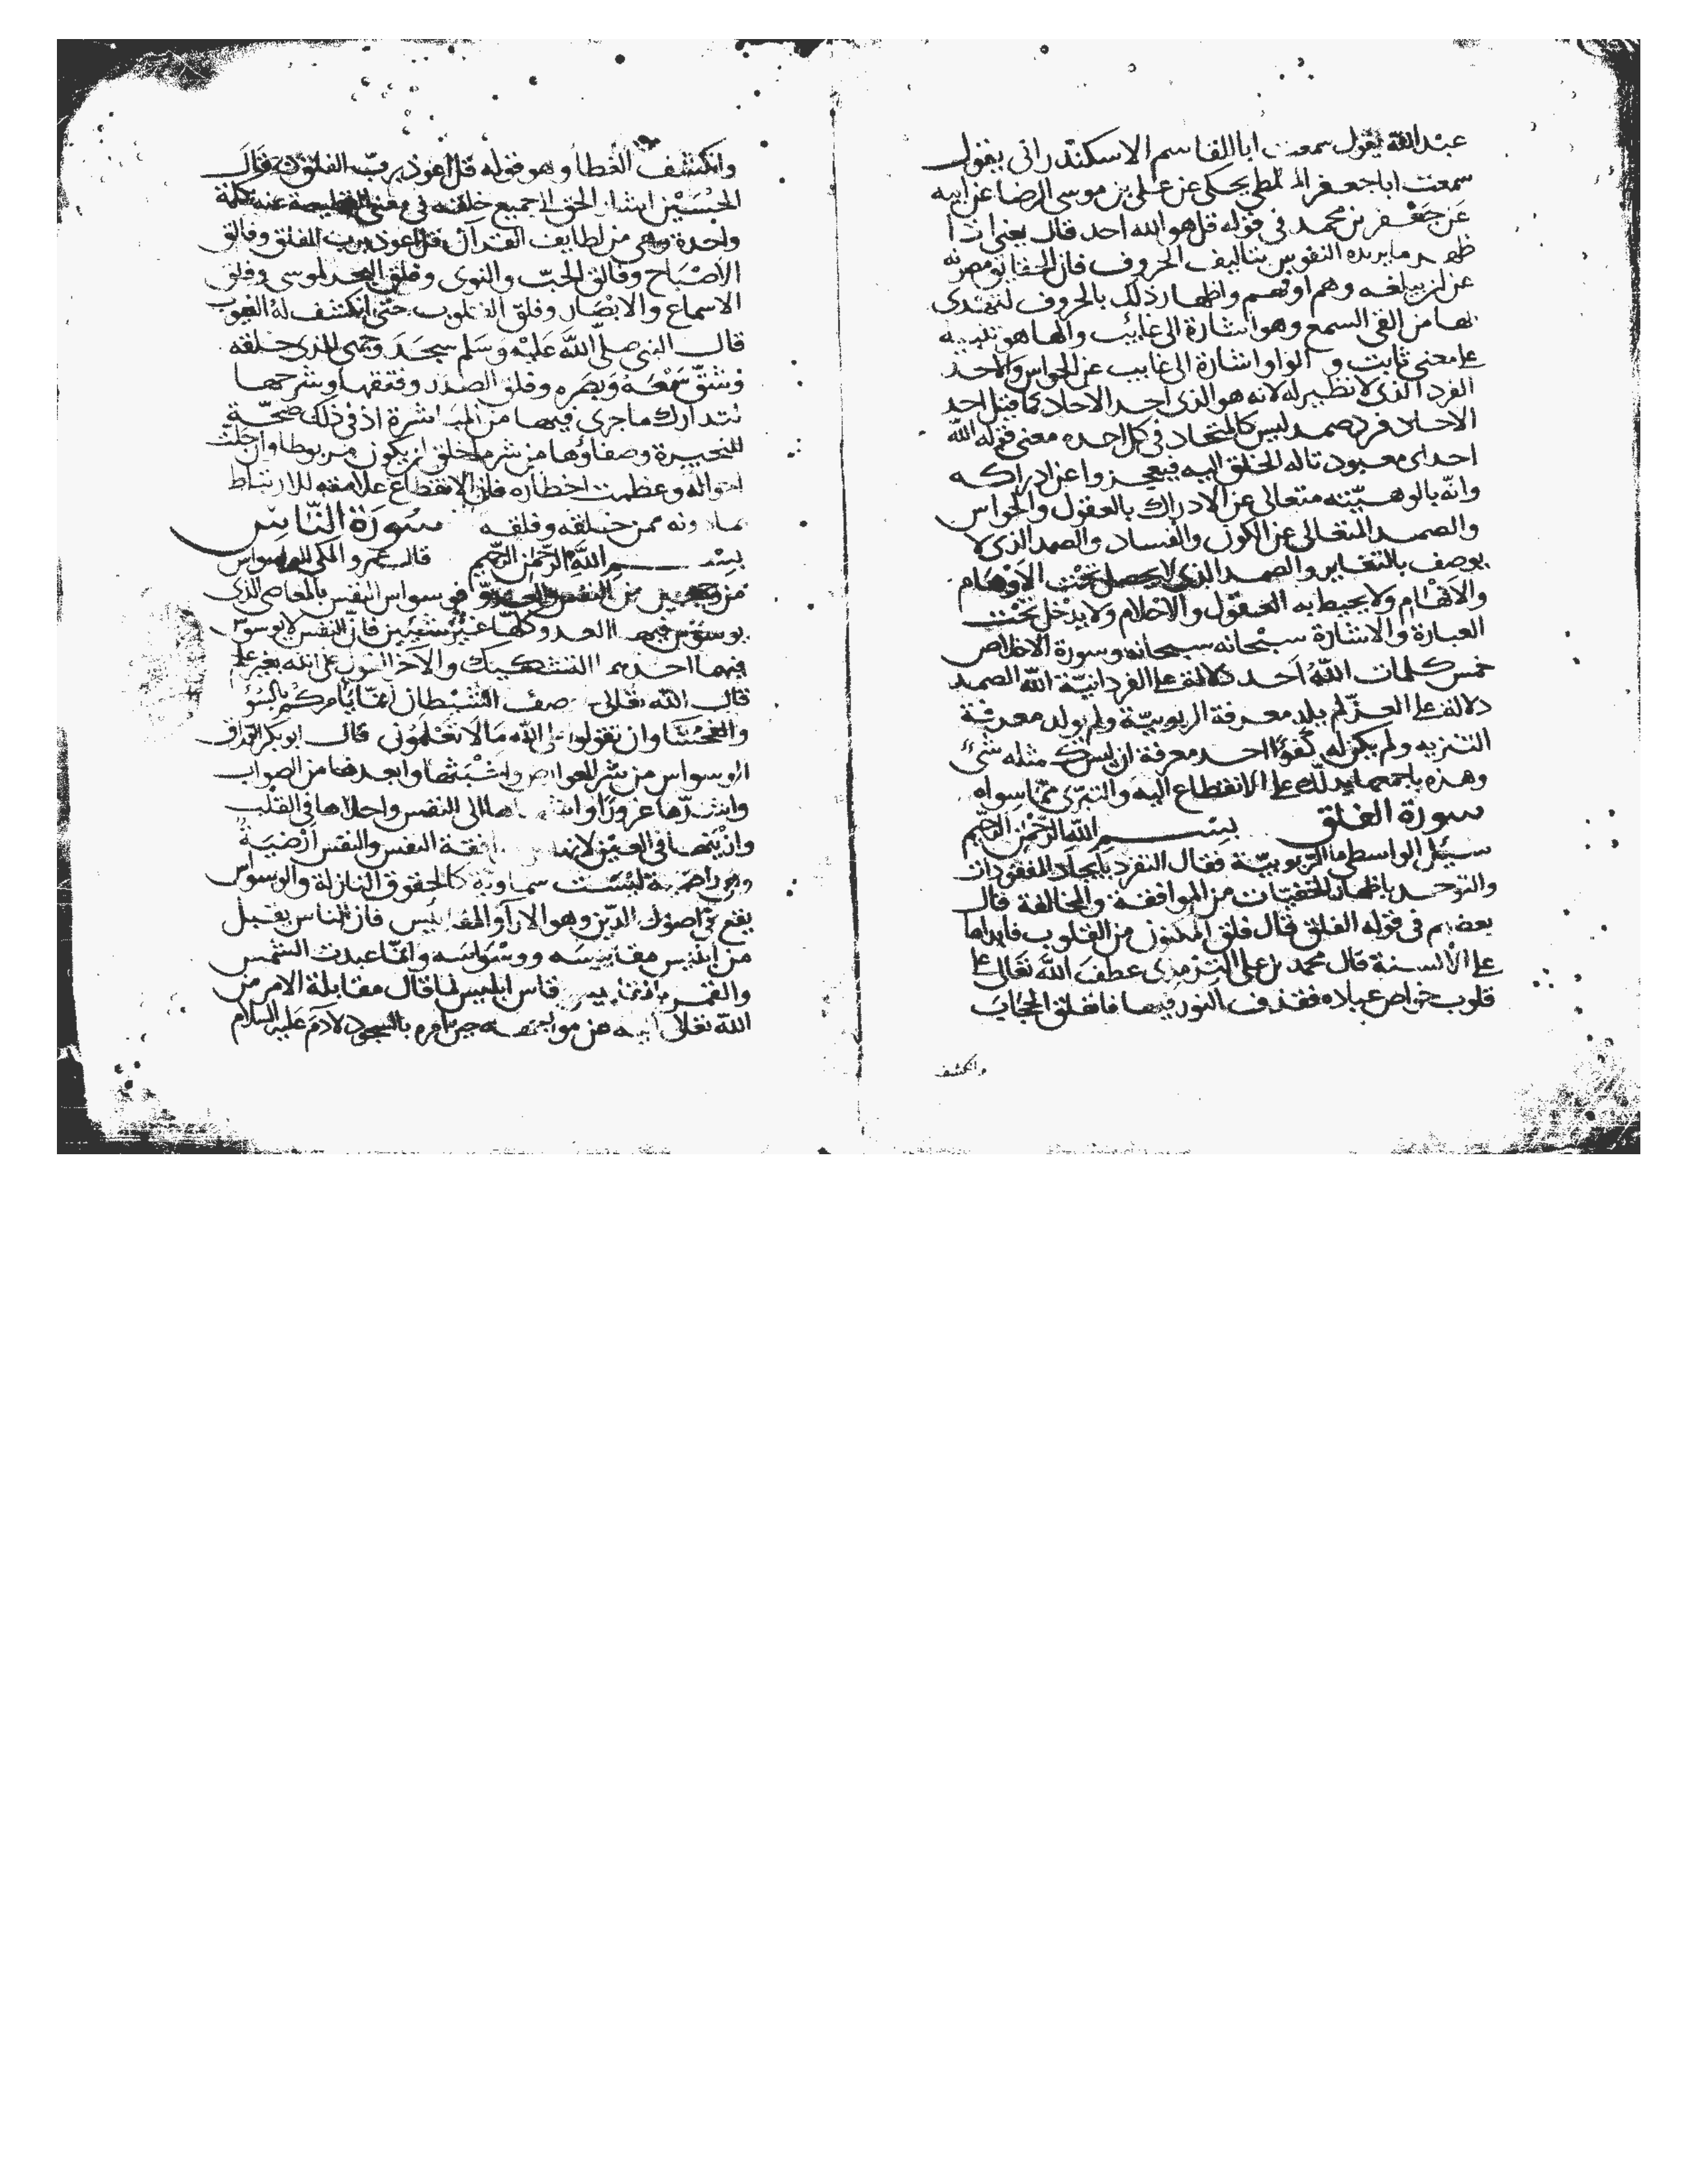 عبد الله يقول سمعت ابا القاسم الاسكندرانى يقول
سمعت ابا جعفر الملطى يحكى عن على بن موسى الرضا عن ابيه
عن جعفر بن محمد فى قوله قل هو الله احد قال يعنى
ما يريده النفوس بتاليف الحروف فان الحقايق مصونه
عن ان يبلغه وهم او فهم واظهار ذلك بالحروف ليهتدى
بها من القى السمع وهو اشارة الى غائب والها هو تنبيه
على معنى ثابت والواو اشارة الى غايب عن الحواس والاحد
الفرد الذى لا نظير له لانه هو الذى احد الاحاد كما قيل احد
الاحاد فرد صمد ليس كالمتحاد فى كل احده معنى قوله الله
احد اى معبود تاله الخلق اليه فيعجزوا عن ادراكه
وانه بالوهيّته متعالى عن الادراك بالعقول والحواس
والصمد المتعالى عن الكون والفساد والصمد الذى لا
يوصف بالتغاير والصمد الذى لا يحصل تحت الاوهام
والافهام ولا يحيط به العقول والاحلام ولا يدخل تحت
العبارة والاشارة سبحانه سبحانه وسورة الاخلاص
خمس كلمات اللّه احد دلالة على الفردانيّة اللّه الصمد
دلالة على العزّ لم يلد معرفة الربوبيّة ولم يولد معرفة
التنزيه ولم يكن له كفوًا احد معرفة ان ليس كمثله شئ
وهذه باجمعها يدلّك على الانقطاع اليه والتبرّى ممّا سواه
سورة الفلق بسم اللّه الرّحمن الرّحيم
سئل الواسطى ما الربوبيّة فقال التفرد بايجاد المفقودات
والتوحد باظهار الخفيّات من الموافقة والمخالفة قال
بعضهم فى قوله الفلق قال فلق المكنون من القلوب فابداها
على الألسنة قال محمد بن على الترمذى عطف اللّه تعالى على
قلوب خواص عباده فقذف النور فيها فانفلق الحجاب
وانكشف
وانكشف الغطا وهو قوله قل اعوذ برب الفلق قال
الحسين اشار الحق الى جميع خلقه فى معنى القطيعة عنه بكلمة
واحدة وهى من لطايف القرآن قل اعوذ برب الفلق وفالق
الاصباح وفالق الحبّ والنوى وفلق البحر لموسى وفلق
الاسماع والابصار وفلق القلوب حتى انكشف له الغيوب
قال النبى صلى اللّه عليه وسلم سجد وجهى للذى خلقه
وشقّ سمعه وبصره وفلق الصدر وفتقها وشرحها
لتدارك ما جرى فيها من المباشرة اذ فى ذلك صحّة
للخيرة وصفاؤها من شر ما خلق ان يكون مربوطا وان جلت
احواله وعظمت اخطاره فان الانقطاع علامته للارتباط
بما دونه ممن خلقه وفلقه سورة النّاس
بسم اللّه الرّحمن الرّحيم قال عمرو المكى الوسواس
من وجهين من النفس والعدوّ فوسواس النفس بالمعاصى الذى
يوسوس فيها العدو كلّها غير شيئين فان النفس لا يوسوس
فيهما احدهما التشكيك والآخر القول على الله بغير علم
قال اللّه تعالى صف الشيطان انمّا يأمركم بالسّوء
والفحشا وان تقولوا على اللّه ما لا تعلمون قال ابو بكر الوراق
الوسواس من شر العوارض واشبثها وابعدها من الصواب
واشدّها غرورًا الى النفس واحلاها فى القلب
وازينها فى العين النفس والنفس ارضية
ليست سماوية كالحقوق النازلة والوسواس
يقع فى اصول الدين وهو الارآ والمقاييس فان الناس يقبل
من ابليس مقاييسه ووسواسه وانمّا عبدت الشمس
والقمر بالمقاييس قاس ابليس لما قال مقابلة الامر من
اللّه تعالى حين امره بالسجود لآدم عليه السلام